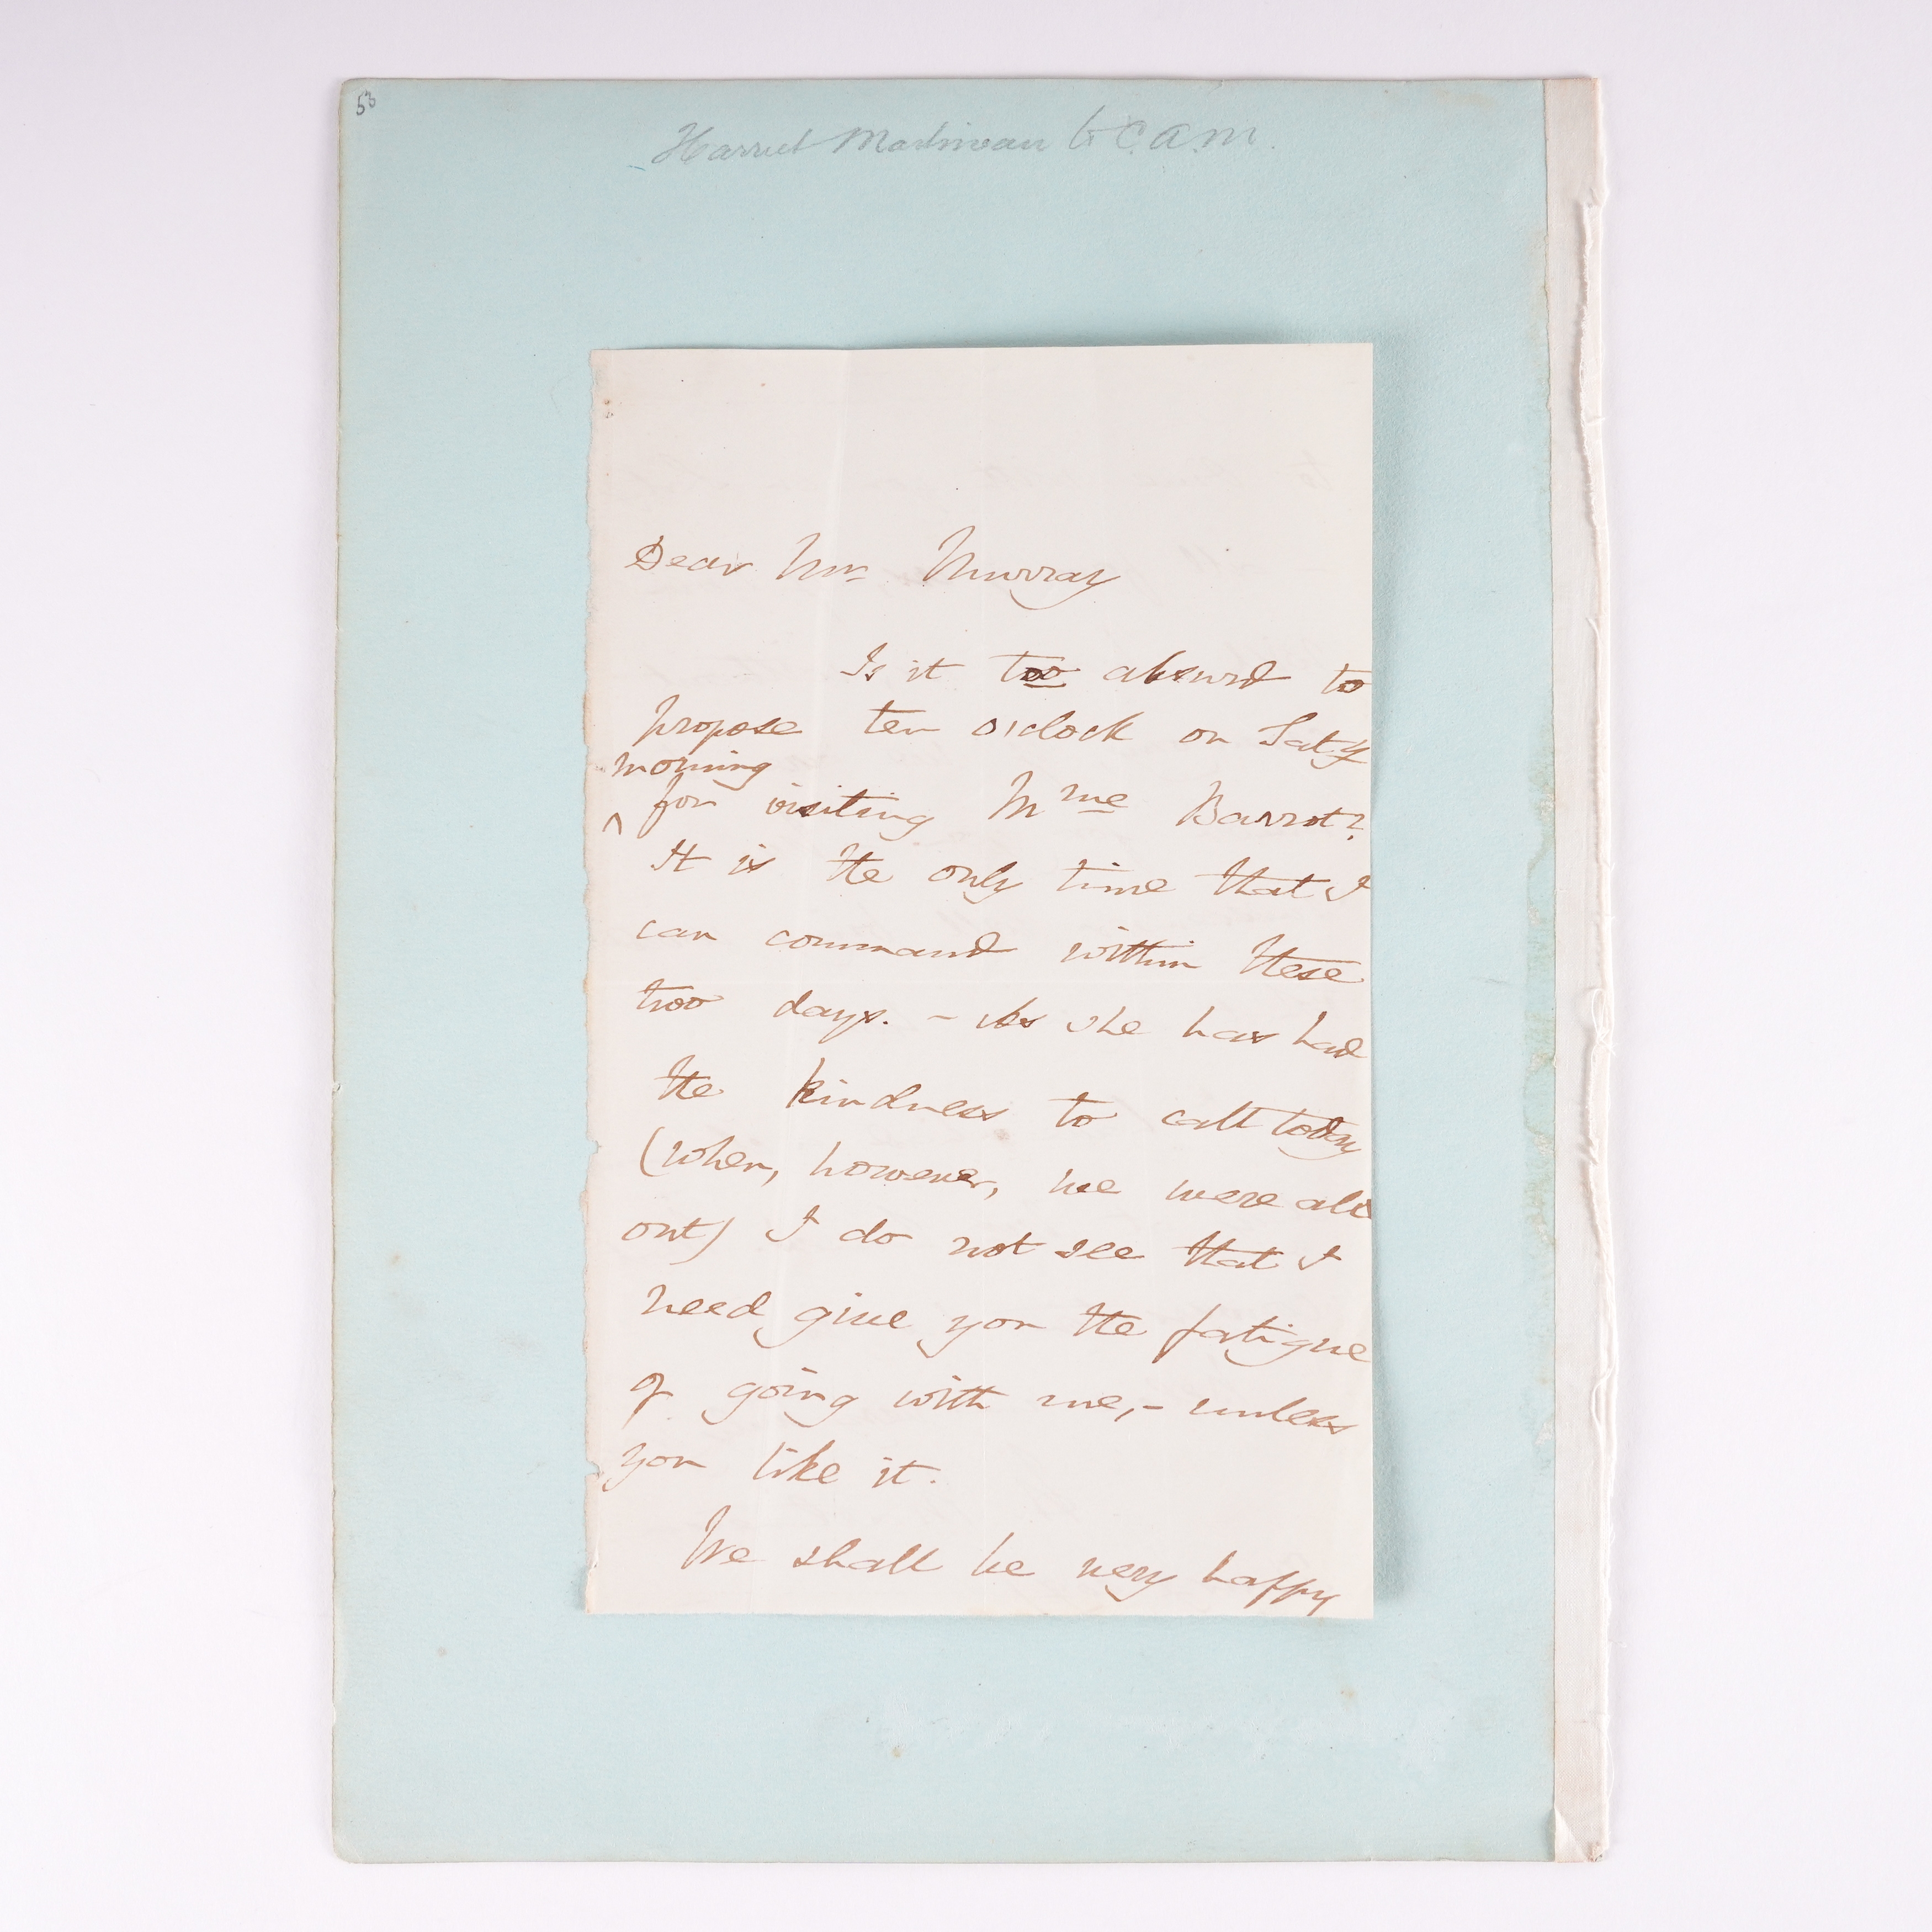 53
Harriet Martineau to C.A.M.
Dear Mr. Murray
Is it too absurd to
propose ten o'clock on Saty
morning
^ for visiting Mme Barrot?
It is the only time that I
can command within these
two days. – As she has had
the kindness to call today
(when, however, we were all
out) I do not see that I
need give you the fatigue
of going with me, – unless
you like it.
We shall be very happy